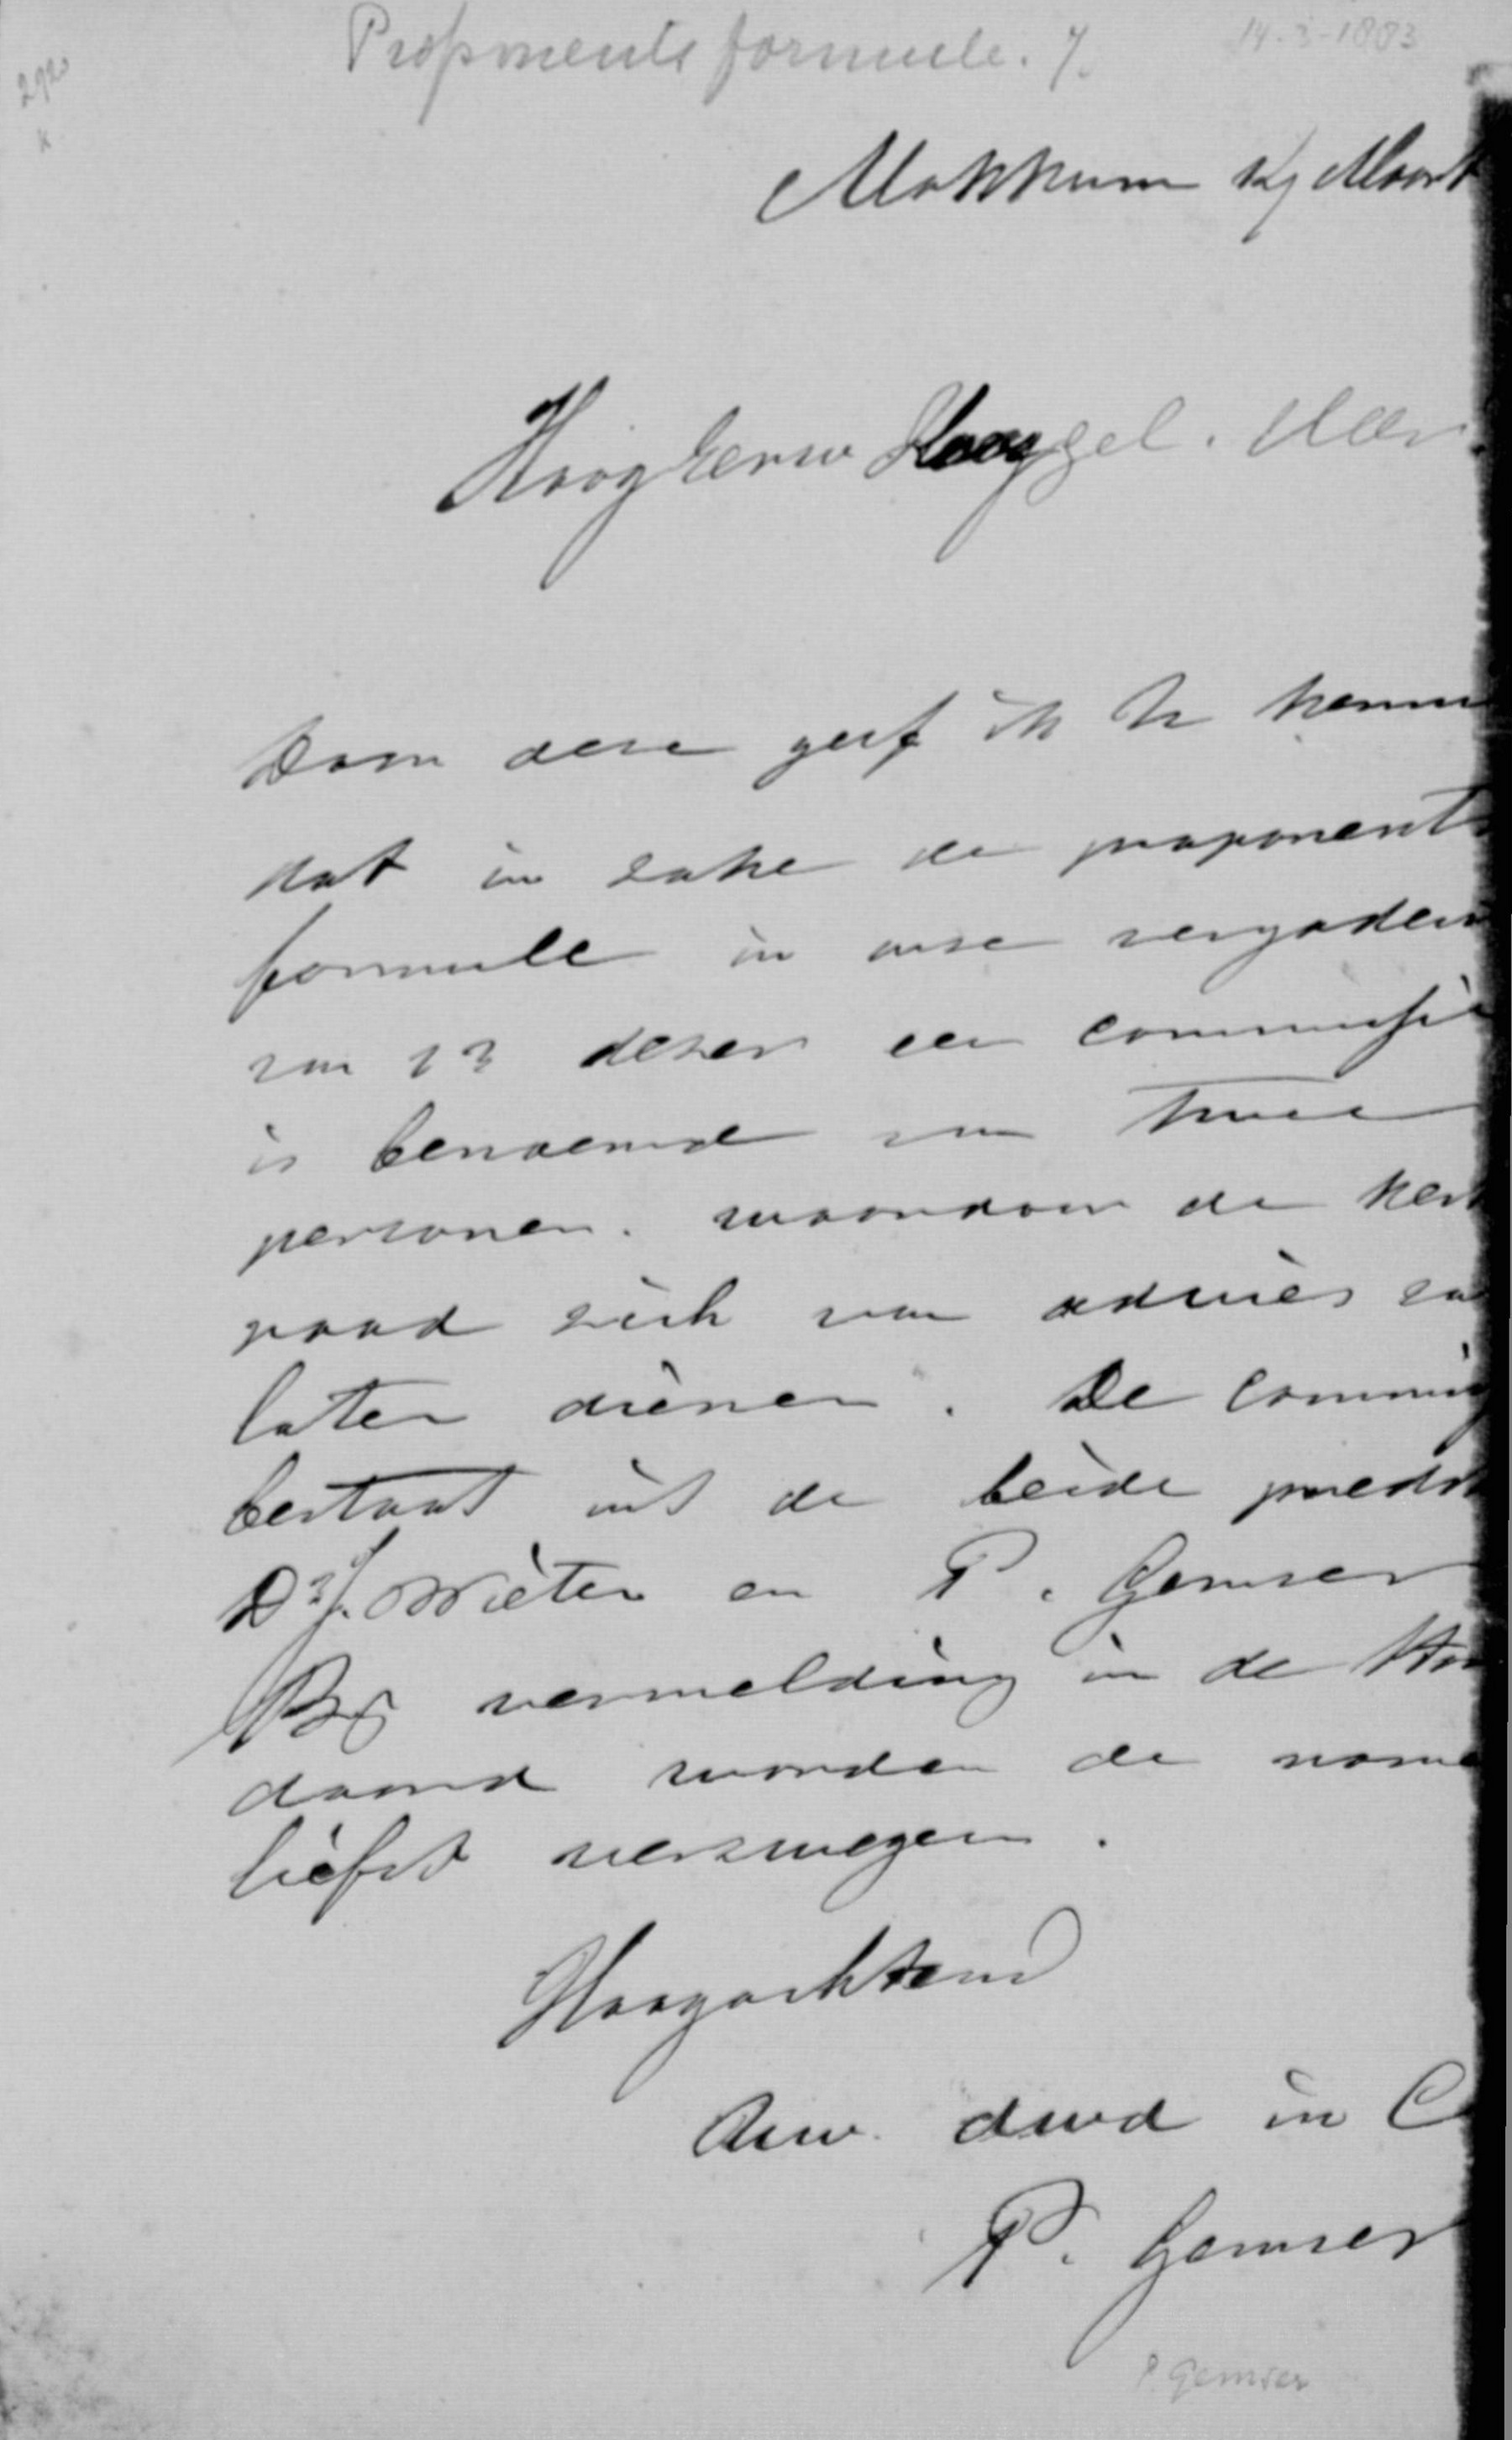 Proponents formule. 7.
14-3-1883
2920
Makkum 14 Maart
HoogEerw Hooggel. Heer
Door deze geef ik U kenni
dat in zake de proponents
formule in onze vergaderi
van 13 dezer een commissie
is benoemd van twee
personen. waardoor de kerk
raad zich van advies za
laten dienen. De commis
bestaat uit de beide predik
Ds J. Wieten en P. Gemser
Bij vermelding in de
daard worden de name
liefst verzwegen.
Hoogachtend
Uw. dwd in C
P. Gemser
P. Gemser